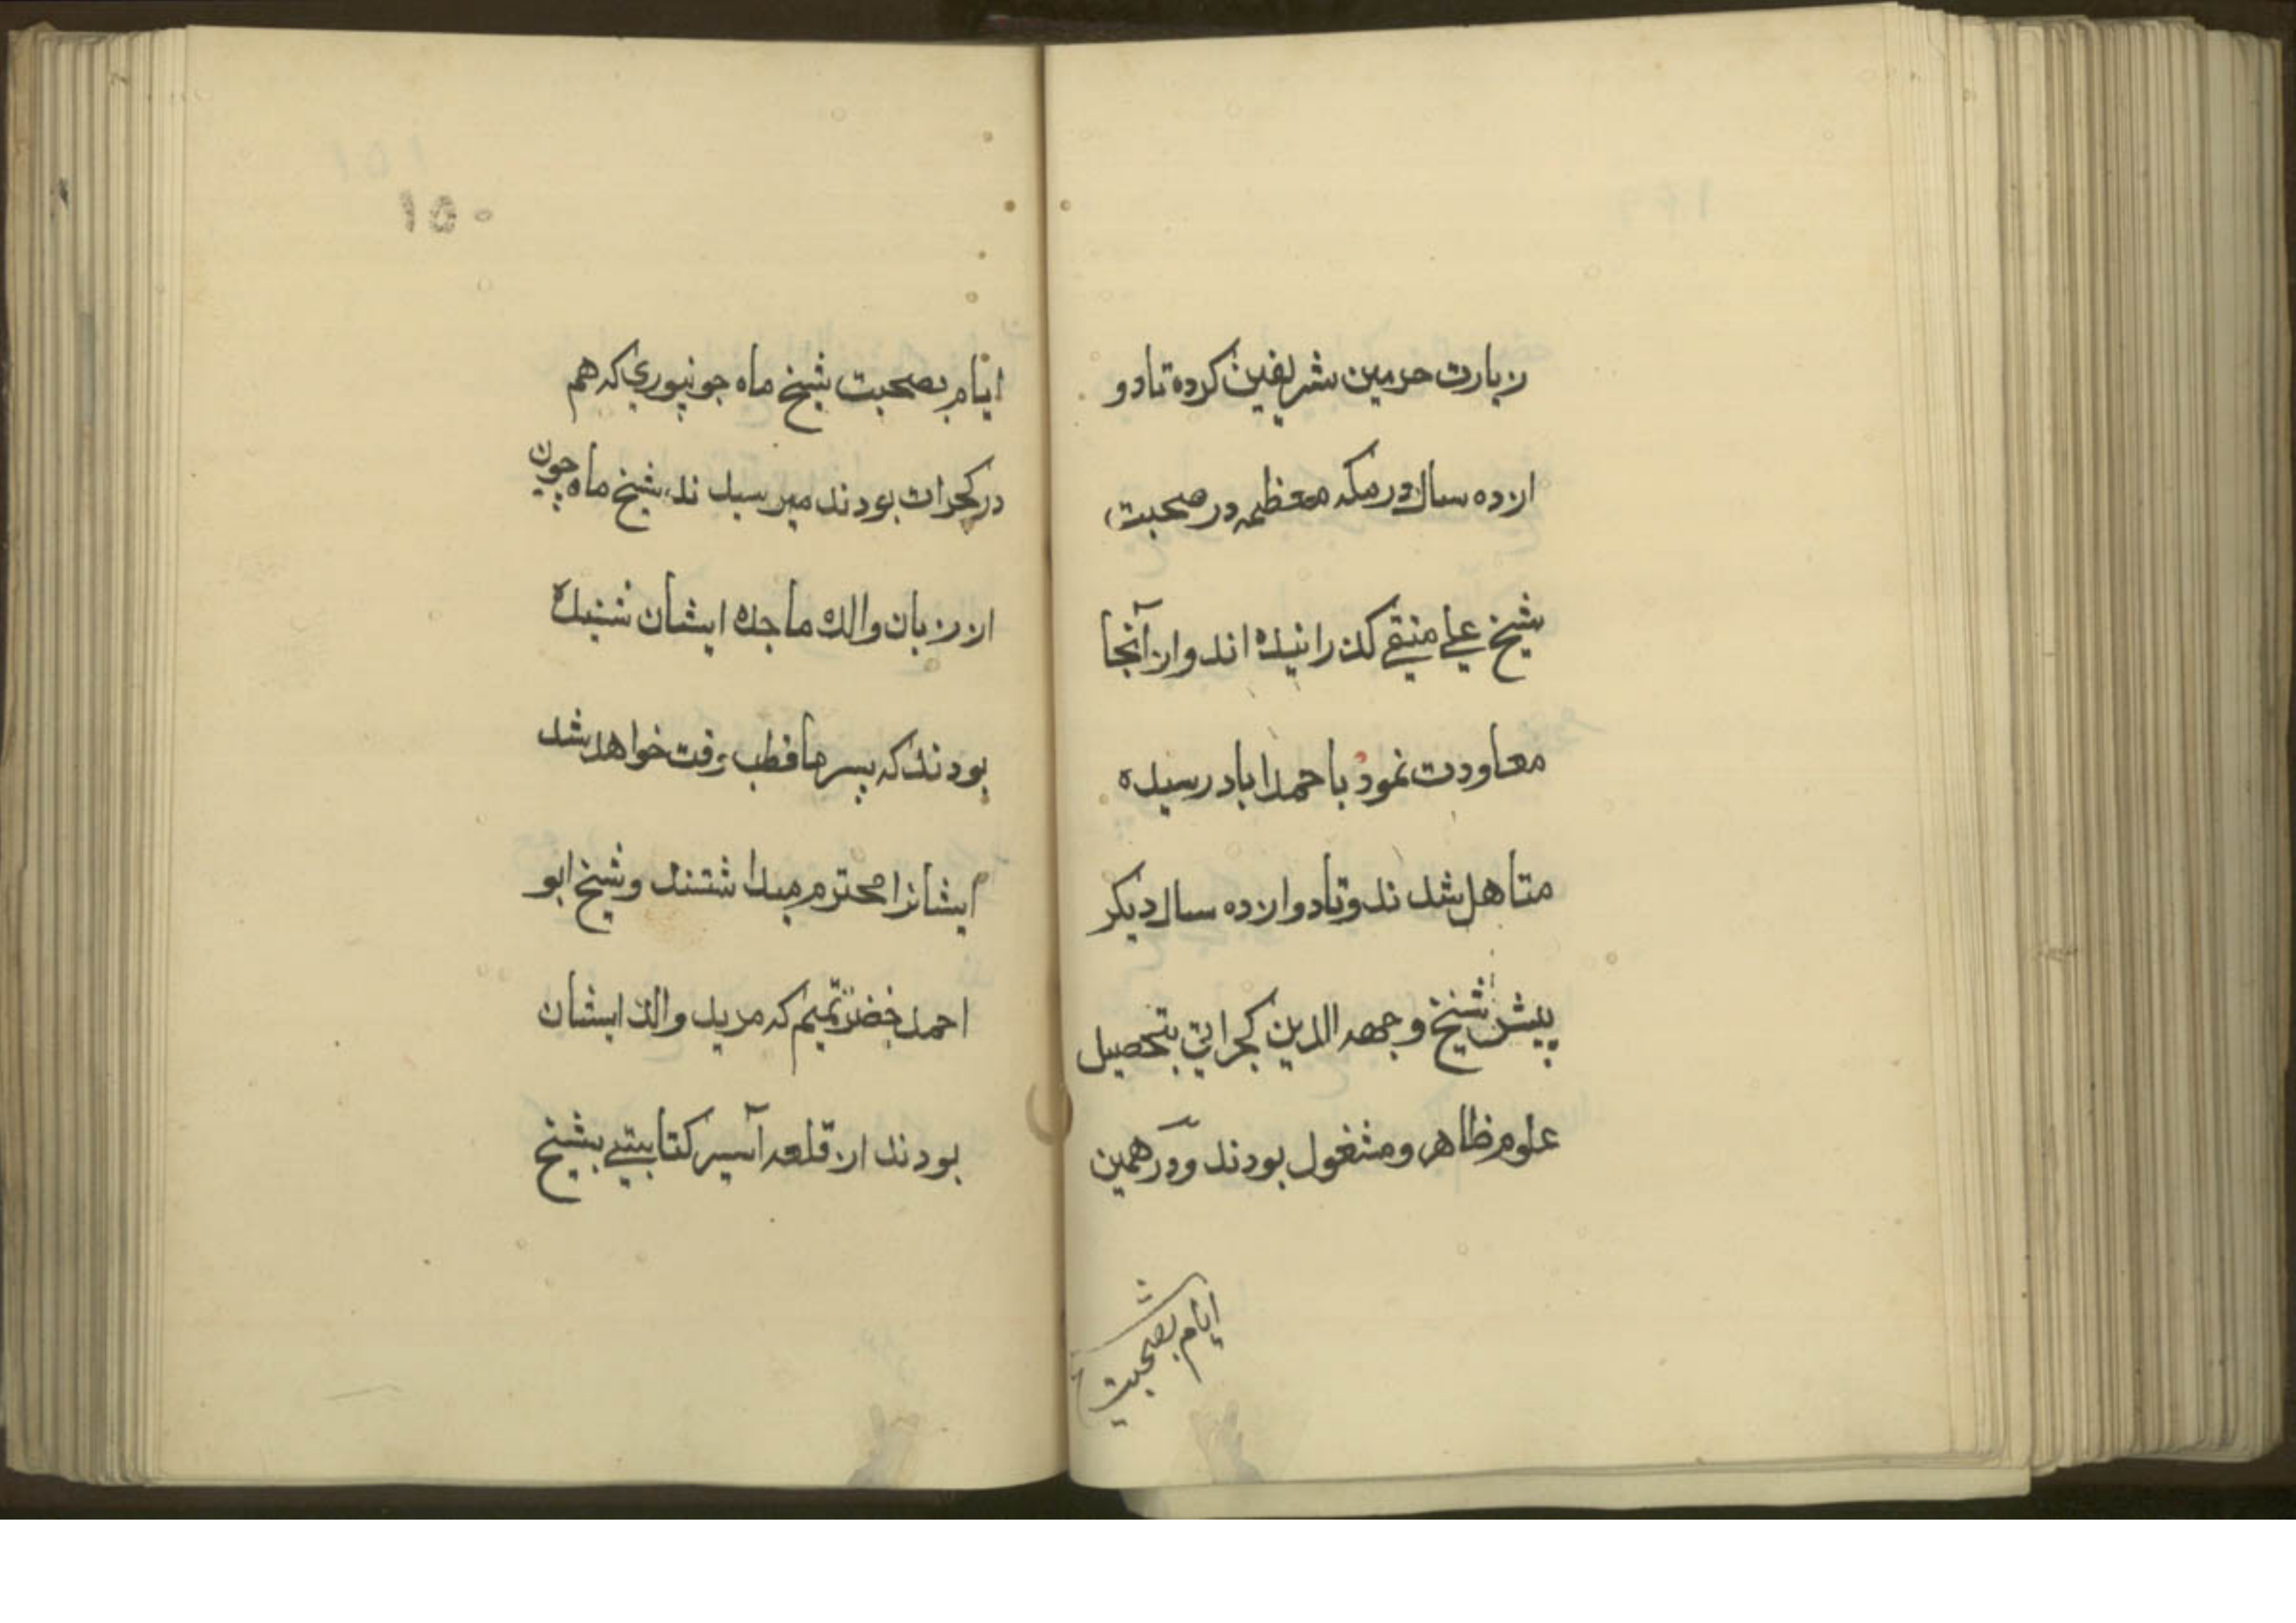 زیارت حرمین شریفین کرده تا دو
ازده سال در مکه معظمه در صحبت
شیخ علی متقی کذرانیده اند و از آنجا
معاودت نموده باحمداباد رسیده
متاهل شدند و تا دوازده سال دیکر
پیش شیخ وجهه الدین کجراتی بتحصیل
علوم ظاهر و مشغول بودند و در همین
ایام بصحبت
۱۵۰
ایام بصحبت شیخ ماه جونپوری که هم
در کجرات بودند میرسیدند، شیخ ماه چون
از زبان والده ماجده ایشان شنیده
بودند که پسر ما قطب وقت خواهد شد
ایشانرا محترم میداشتند و شیخ ابو
احمد خضر تمیم که مرید والد ایشان
بودند از قلعه آسیر کتابتی بشیخ